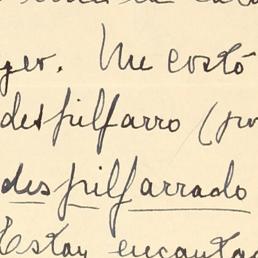 ger. Me costó
despilfarro (
despilfarrado
Estoy encanta